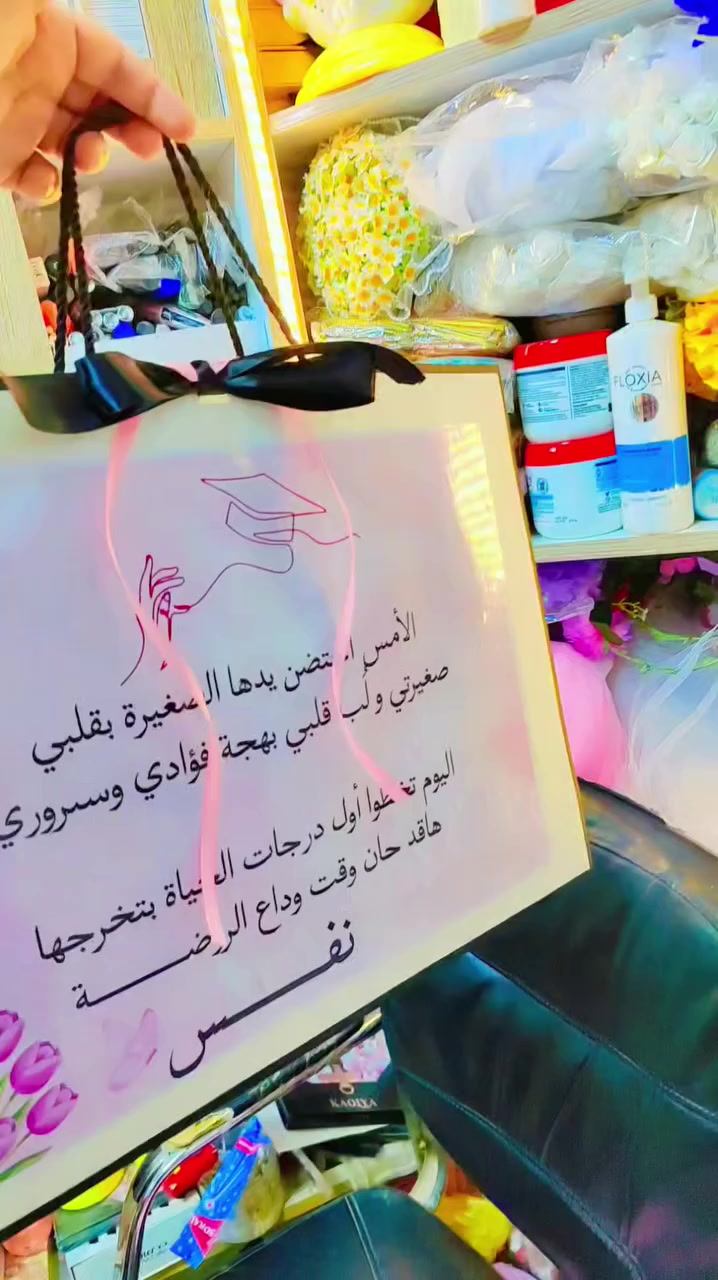 الأمس احتضن يدها الصغيرة بقلبي
صغيرتي ولُب قلبي بهجة فؤادي وسروري
اليوم تخطوا أول درجات الحياة بتخرجها
هاقد حان وقت وداع الروضـــــة
نفـــــس
FLOXIA
KAOIYA